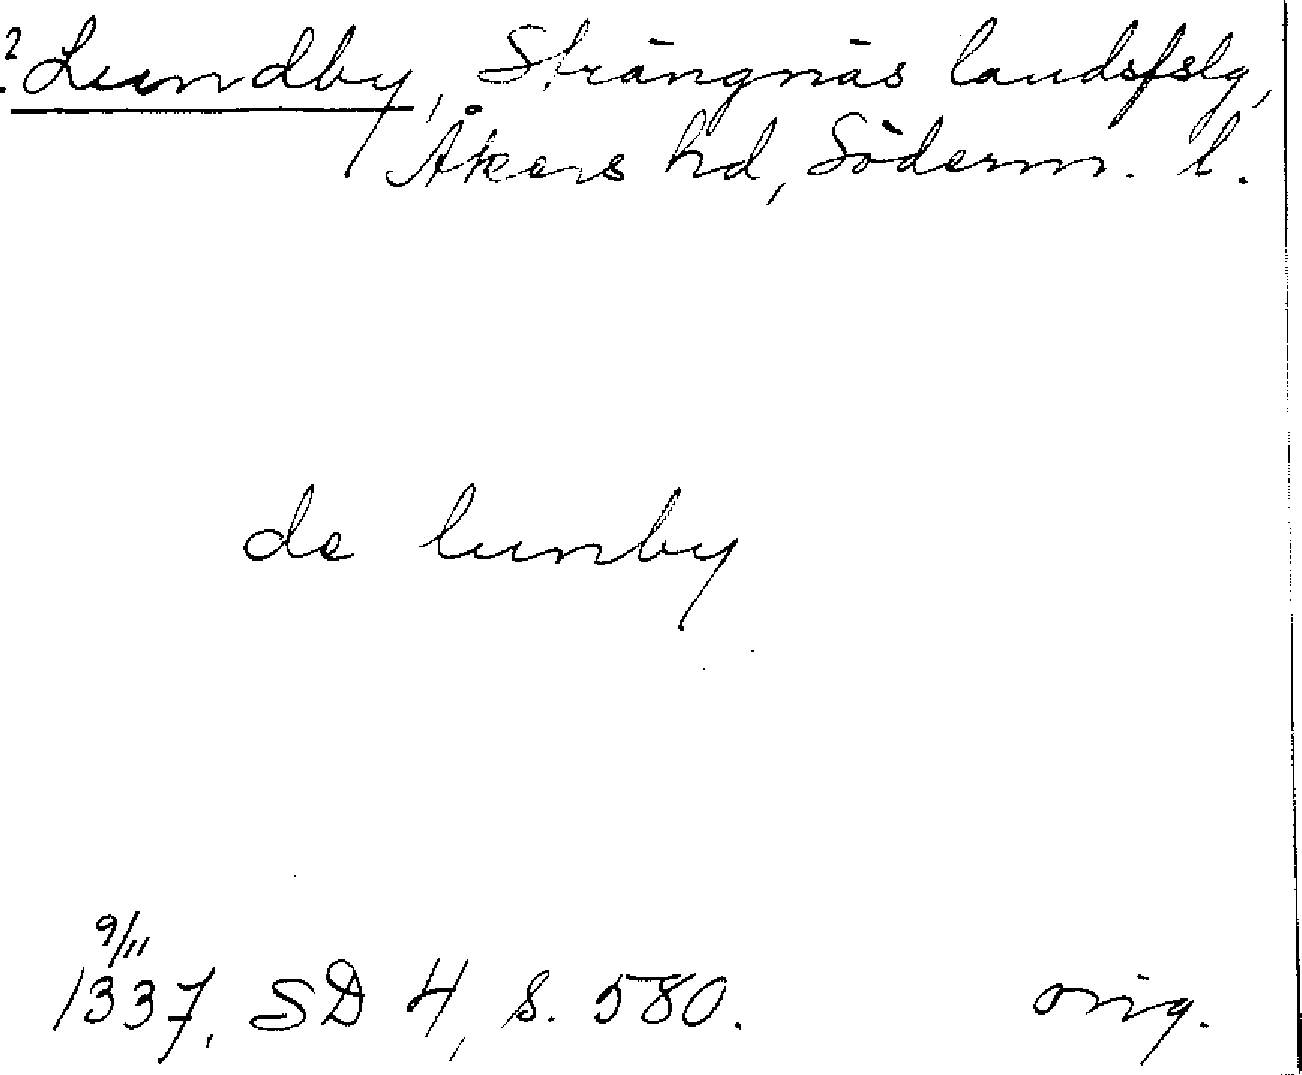 ? Lundby, Strängnäs landsfslg,
Åkers hd, Söderm. l.
de lunby
9/11
1337, SD 4, s. 580. orig.